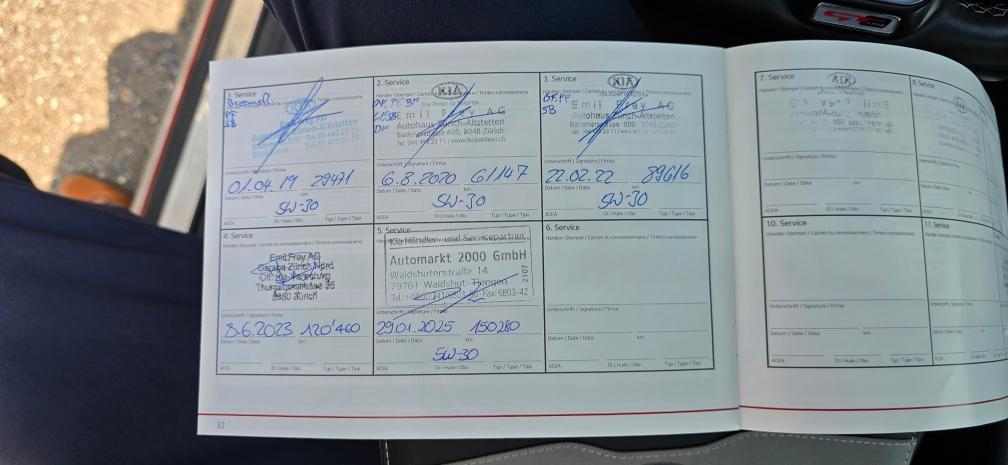 GT LINE
1. Service
Händler-Stempel / Cachet du concessionnaire / Timbro concessionario
Bremsfl.
PF
SB
KIA
Unterschrift / Signature / Firma
01.04.19 29471
Datum / Date / Data km
5W-30
ACEA Öl / Huile / Olio Typ / Type / Tipo
2. Service
Händler-Stempel / Cachet du concessionnaire / Timbro concessionario
KIA
The Power to Surprise
Emil Frey AG
Autohaus Zürich-Altstetten
Badenerstrasse 600, 8048 Zürich
Unterschrift / Signature / Firma
6.8.2020 61147
Datum / Date / Data km
5W-30
ACEA Öl / Huile / Olio Typ / Type / Tipo
3. Service
Händler-Stempel / Cachet du concessionnaire / Timbro concessionario
KIA
SB
Emil Frey AG
Autohaus Zürich-Altstetten
Badenerstrasse 600, 8048 Zürich
Unterschrift / Signature / Firma
22.02.22 89616
Datum / Date / Data km
5W-30
ACEA Öl / Huile / Olio Typ / Type / Tipo
4. Service
Händler-Stempel / Cachet du concessionnaire / Timbro concessionario
Emil Frey AG
Garage Zürich Nord
Thurgauerstrasse 35
8050 Zürich
Unterschrift / Signature / Firma
8.6.2023 120'460
Datum / Date / Data km
ACEA Öl / Huile / Olio Typ / Type / Tipo
5. Service
Kia Händler- und Servicepartner
Automarkt 2000 GmbH
Waldshuterstraße 14
79761 Waldshut-Tiengen
Fax: 6803-42
2107
Unterschrift / Signature / Firma
29.01.2025 150280
Datum / Date / Data km
5W-30
ACEA Öl / Huile / Olio Typ / Type / Tipo
6. Service
Händler-Stempel / Cachet du concessionnaire / Timbro concessionario
Unterschrift / Signature / Firma
Datum / Date / Data km
ACEA Öl / Huile / Olio Typ / Type / Tipo
32
7. Service
Unterschrift / Signature / Firma
Datum / Date / Data km
ACEA Öl / Huile / Olio Typ / Type / Tipo
8. Service
10. Service
Händler-Stempel / Cachet du concessionnaire / Timbro concessionario
Unterschrift / Signature / Firma
Datum / Date / Data km
ACEA Öl / Huile / Olio Typ / Type / Tipo
11. Service